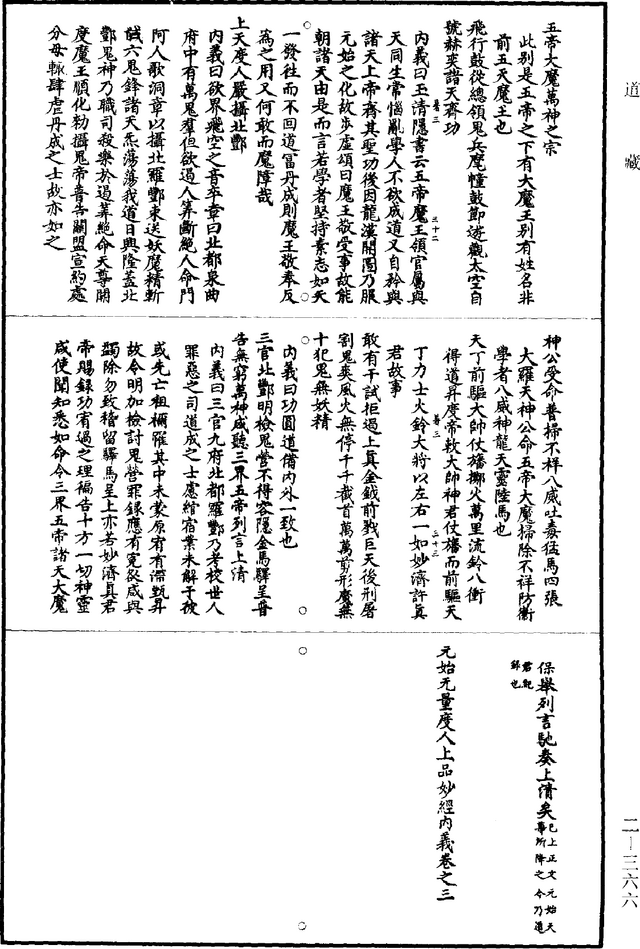 五帝大魔萬神之宗
此別是五帝之下有大魔王別有姓名非
前五天魔王也
飛行鼓從總領鬼兵麾幢鼓節遊觀太空自
號赫奕諸天齊功
內義曰玉清隱書云五帝魔王領官屬與
天同生常惱亂學人不欲成道又自矜與
諸天上帝齊其聖功後因龍漢開圖乃服
元始之化故步虛頌曰魔王敬受事故能
朝諸天由是而言若學者堅持素志如矢
一發往而不回道冨丹成則魔王敬奉反
為之用又何敢而魔障哉
上天度人嚴攝北酆
內義曰欲界飛空之音卒章曰北都泉曲
府中有萬鬼羣但欲遏人筭斷絕人命門
阿人歌洞章以攝北羅酆束送妖魔精斬
馘六鬼鋒諸天炁蕩蕩我道日興隆蓋北
酆鬼神乃職司殺樂於遏筭絕命天尊開
度魔王順化勑攝鬼帝普告關盟宣約處
分毋輙肆虐丹成之士故亦如之
神公受命普掃不祥八威吐毒猛馬四張
大羅天神公命五帝大魔掃除不祥防衞
學者八威神龍天靈陸馬也
天丁前驅大帥仗旛擲火萬里流鈴八衝
得道昇度帝敕大帥神君仗旛而前驅天
丁力士火鈴大將以左右一如妙濟許真
君故事
敢有干試拒遏上真金鉞前戮巨天後刑屠
割鬼爽風火無停千千截首萬萬剪形魔無
十犯鬼無妖精
內義曰功圓道備內外一致也
三官北酆明檢鬼營不得容隱金馬驛呈普
告無窮萬神咸聽三界五帝列言上清
內義曰三官九府北都羅酆乃考校世人
罪惡之司道成之士慮綰宿業未解于彼
或先亡祖禰罹其中未蒙原宥有滯甄昇
故令明加檢討鬼營罪錄應有冤欲咸與
蠲除勿致稽留驛馬呈上亦若妙濟真君
帝賜錄功宥過之理徧告十方一切神靈
咸使聞知悉如命令三界五帝諸天大魔
保舉列言馳奏上清矣已上正文元始天
尊所降之今乃道
君紀
錄也
元始无量度人上品妙經內義卷之三
卷三
三十二
卷三
三十三
道藏
二－三六六